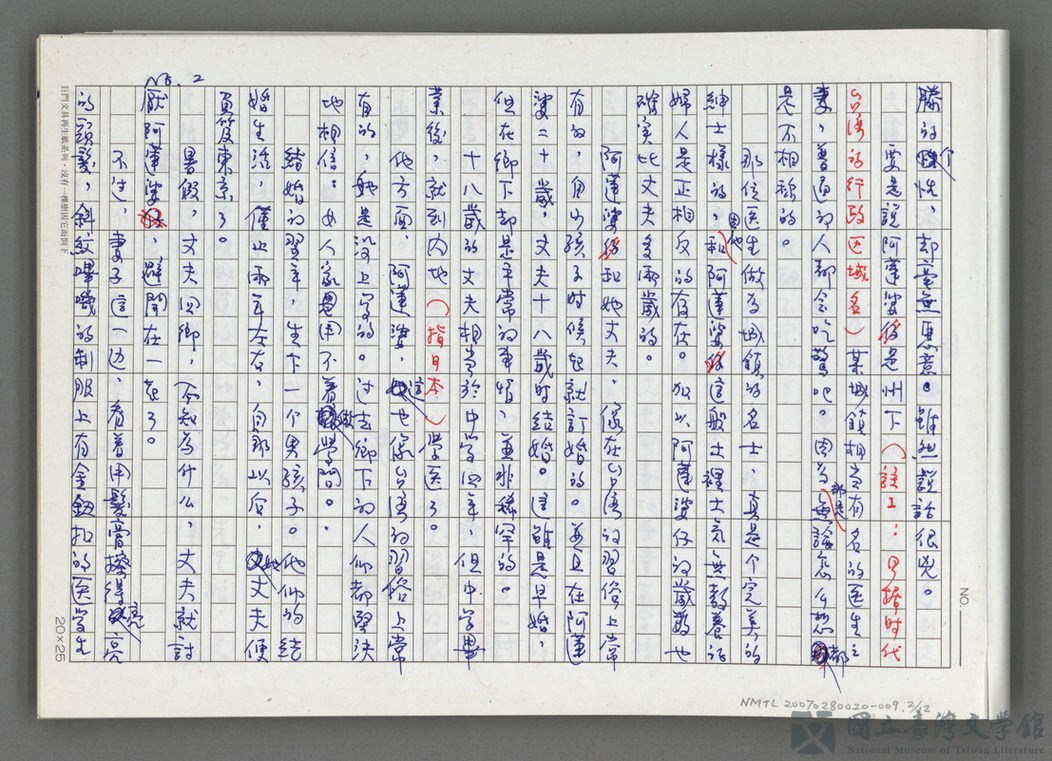 勝的個性，却毫無惡意。雖然說話很兇。
要是說阿蓮婆仔是州下（註1：日據时代
台湾的行政区域名）某城鎮相当有名的医生之
妻，普通的人都会吃驚吧。因為無論怎么想都
是不相称的。
那位医生做為城鎮的名士，真是个完美的
紳士樣的，和阿蓮婆仔這般土裡土气無教養的
婦人是正相反的存在。加以阿蓮婆仔的歲數也
確实比丈夫多兩歲的。
阿蓮婆仔和她丈夫，像在台湾的習俗上常
有的，自小孩子时候起就訂婚的。並且在阿蓮
婆二十歲，丈夫十八歲时結婚。這雖是早婚，
但在鄉下却是平常的事情，並非稀罕的。
十八歲的丈夫相当於中学四年，但中学畢
業後，就到内地（指日本）学医了。
他方面，阿蓮婆，這也像台湾的習俗上常
有的，她是没上学的。过去鄉下的人们都堅決
地相信：女人家是用不着做學問。
結婚的翌年，生下一个男孩子。他们的結
婚生活，僅止兩年左右，自那以后，丈夫便
負笈東京了。
暑假，丈夫回鄉，不知為什么，丈夫就討
厭阿蓮婆，避開在一起了。
不过，妻子這一边，看着用髮膏擦得亮
的頭髮，斜紋嗶嘰的制服上有金鈕扣的医学生
No. 2
NO.
20×25
巨門文具再生紙系列・沒有一棵樹因它而倒下
NMTL 20070280020-009. 2/12
國立臺灣文學館
National Museum of Taiwan Literature